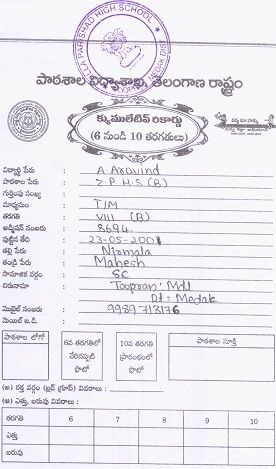 Z.P. PARSHAD HIGH SCHOOL
MEDAK DIST
పాఠశాల విద్యాశాఖ, తెలంగాణ రాష్ట్రం
క్యుములేటివ్ రికార్డు
(6 నుండి 10 తరగతులు)
విద్యార్థి పేరు : A. Aravind
పాఠశాల పేరు : Z.P.H.S (B)
గుర్తింపు సంఖ్య :
మాధ్యమం : T/M
తరగతి : VIII (B)
అడ్మిషన్ నంబరు : 8694
పుట్టిన తేది : 23-05-2001
తల్లి పేరు : Nirmala
తండ్రి పేరు : Mahesh
సామాజిక వర్గం : SC
చిరునామా : Toopran: Mdl
Dt = Medak
మొబైల్ నంబరు : 9989713176
మెయిల్ ఐ.డి. :
పాఠశాల లోగో
6వ తరగతిలో చేరినప్పటి ఫొటో
10వ తరగతి ప్రారంభంలో ఫొటో
పాఠశాల సూక్తి
(అ) రక్త వర్గం (బ్లడ్ గ్రూప్) వివరాలు :
(ఆ) ఎత్తు, బరువు వివరాలు :
తరగతి 6 7 8 9 10
ఎత్తు
బరువు